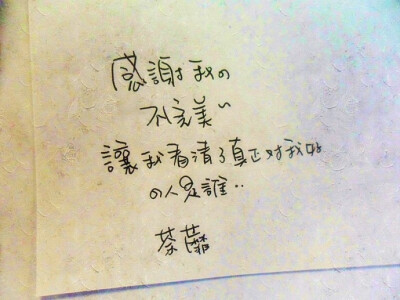 感謝我の
不完美"
讓我看清了真正对我好
の人是誰..
荼蘼